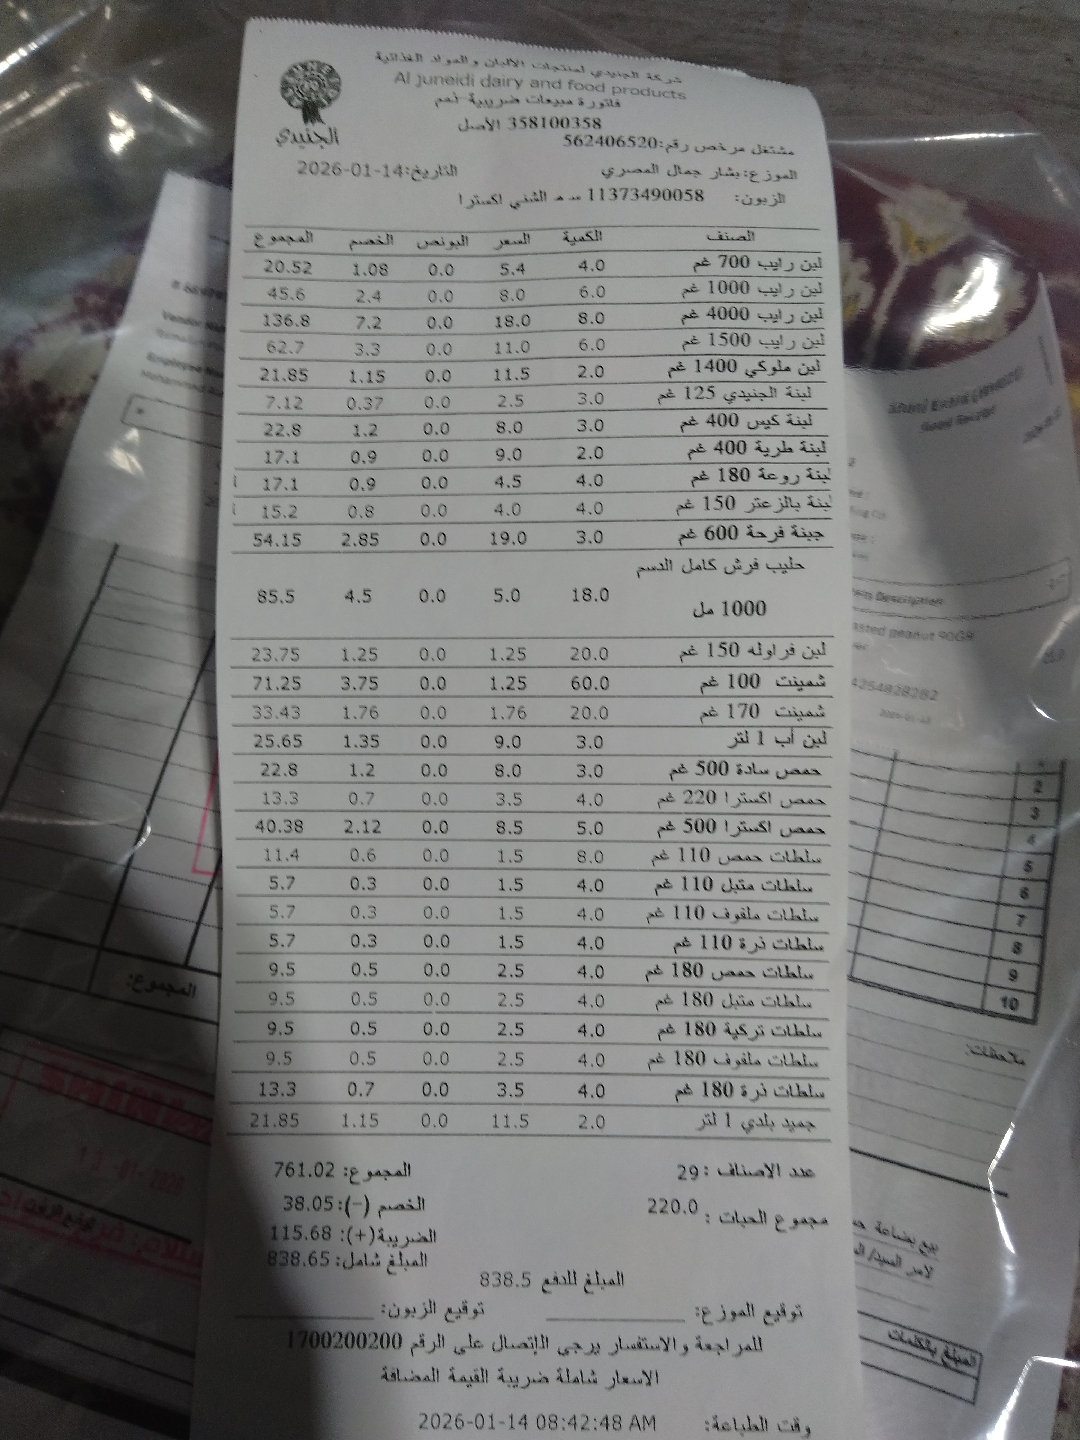 شركة الجنيدي لمنتجات الالبان والمواد الغذائية
Al juneidi dairy and food products
الجنيدي
فاتورة مبيعات ضريبية-ذمم
358100358 الأصل
مشتغل مرخص رقم:562406520
الموزع: بشار جمال المصري التاريخ:14-01-2026
الزبون: 11373490058 س م الشني اكسترا
الصنف الكمية السعر البونص الخصم المجموع
لبن رايب 700 غم 4.0 5.4 0.0 1.08 20.52
لبن رايب 1000 غم 6.0 8.0 0.0 2.4 45.6
لبن رايب 4000 غم 8.0 18.0 0.0 7.2 136.8
لبن رايب 1500 غم 6.0 11.0 0.0 3.3 62.7
لبن ملوكي 1400 غم 2.0 11.5 0.0 1.15 21.85
لبنة الجنيدي 125 غم 3.0 2.5 0.0 0.37 7.12
لبنة كيس 400 غم 3.0 8.0 0.0 1.2 22.8
لبنة طرية 400 غم 2.0 9.0 0.0 0.9 17.1
لبنة روعة 180 غم 4.0 4.5 0.0 0.9 17.1
لبنة بالزعتر 150 غم 4.0 4.0 0.0 0.8 15.2
جبنة فرحة 600 غم 3.0 19.0 0.0 2.85 54.15
حليب فرش كامل الدسم
1000 مل 18.0 5.0 0.0 4.5 85.5
لبن فراوله 150 غم 20.0 1.25 0.0 1.25 23.75
شمينت 100 غم 60.0 1.25 0.0 3.75 71.25
شمينت 170 غم 20.0 1.76 0.0 1.76 33.43
لبن أب 1 لتر 3.0 9.0 0.0 1.35 25.65
حمص سادة 500 غم 3.0 8.0 0.0 1.2 22.8
حمص اكسترا 220 غم 4.0 3.5 0.0 0.7 13.3
حمص اكسترا 500 غم 5.0 8.5 0.0 2.12 40.38
سلطات حمص 110 غم 8.0 1.5 0.0 0.6 11.4
سلطات متبل 110 غم 4.0 1.5 0.0 0.3 5.7
سلطات ملفوف 110 غم 4.0 1.5 0.0 0.3 5.7
سلطات ذرة 110 غم 4.0 1.5 0.0 0.3 5.7
سلطات حمص 180 غم 4.0 2.5 0.0 0.5 9.5
سلطات متبل 180 غم 4.0 2.5 0.0 0.5 9.5
سلطات تركية 180 غم 4.0 2.5 0.0 0.5 9.5
سلطات ملفوف 180 غم 4.0 2.5 0.0 0.5 9.5
سلطات ذرة 180 غم 4.0 3.5 0.0 0.7 13.3
جميد بلدي 1 لتر 2.0 11.5 0.0 1.15 21.85
عدد الاصناف :29 المجموع: 761.02
مجموع الحبات : 220.0 الخصم (-):38.05
الضريبة(+): 115.68
المبلغ شامل: 838.65
المبلغ للدفع 838.5
توقيع الموزع: توقيع الزبون:
للمراجعة والاستفسار يرجى الإتصال على الرقم 1700200200
الاسعار شاملة ضريبة القيمة المضافة
وقت الطباعة: 2026-01-14 08:42:48 AM
المجموع:
2
3
4
5
6
7
8
9
10
ملاحظات:
المبلغ بالكلمات